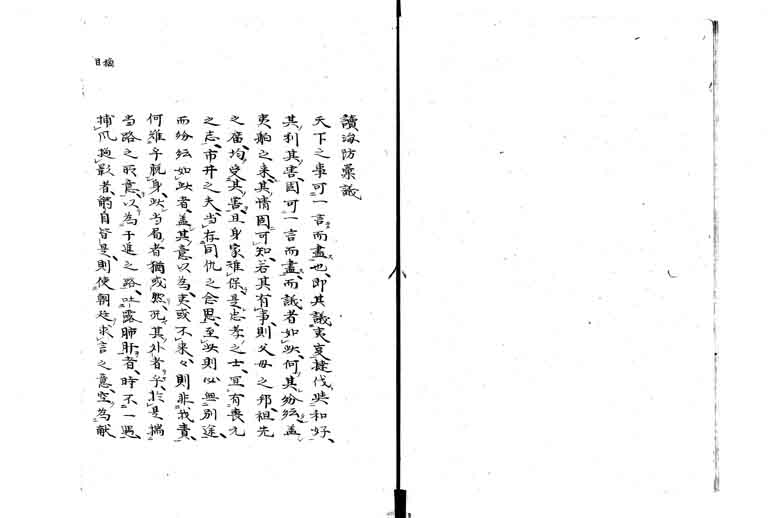 讀海防彙議
天下之事可一言而盡也、即其議夷变撻伐與和好、
其利其害、固可一言而盡、而議者如此、何其紛紜、蓋
夷舶之来、其情固可知、若其有事、則父母之邦、祖先
之廬、均受其害、且身家難保、是忠孝之士、宜有喪元
之志、市井之夫、當存同仇之念、思至此則必無別途、
而紛紜如此者、蓋其意以為夷或不来々則非我責、
何難乎親身、此當局者猶或然、況其外者乎、於是揣
當路之所意、以為干進之路、吐露肺肝者、時不一遇
捕風捉影者、觸自皆是、則使朝廷求言之意、空為献
摘
目